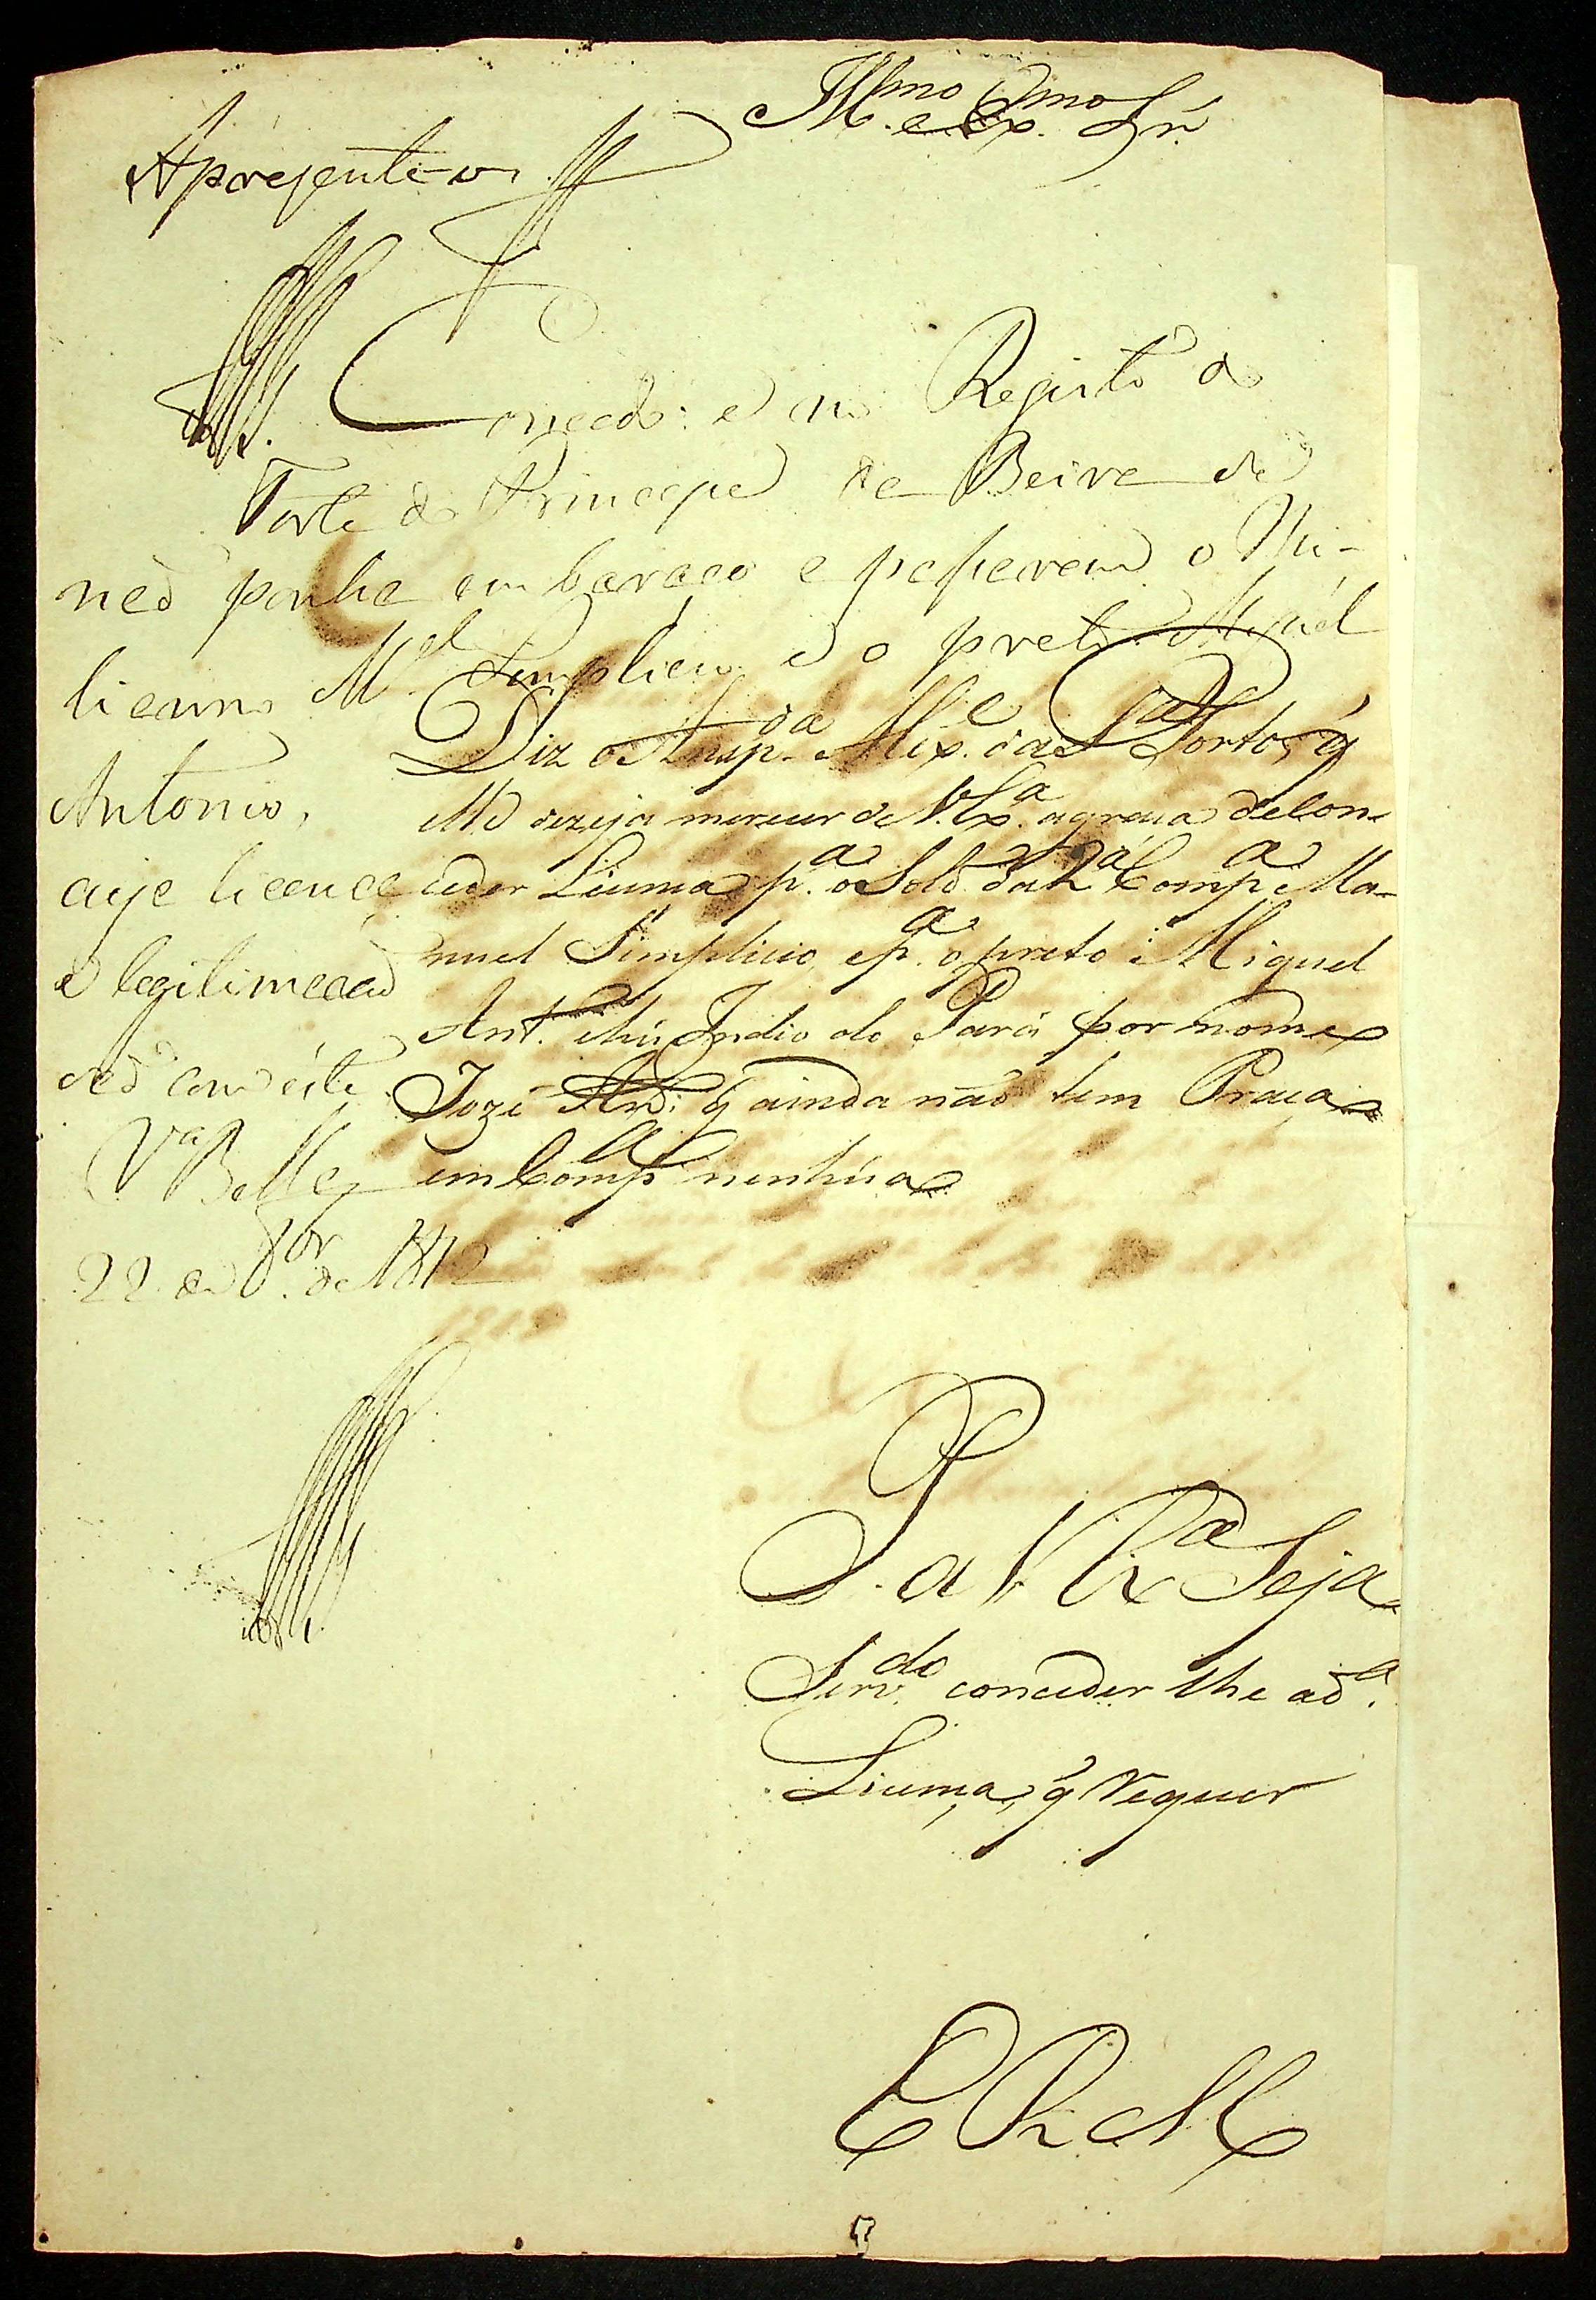 Ill.mo e Ex.mo Sr.
Aprezente-o
Concedo: e no Registo do
Forte do Principe da Beira se
não ponha embaraço e passarem o Mi-
liciano M.el Simplicio e o preto Miguel
Antonio,
cuja licença
é legitimada
com este
V.a Bella
22 de 8br.o de 1812
Diz o Alex.e da S.a Porto, q
elle dezeja merecer de V. Ex.a a graça de Con-
ceder Licença p.a o Sold.o da 2.a Comp.a Ma-
nuel Simplicio, e p.a o preto Miguel
Ant.o e hú Indio do Pará por nome
Jozé q ainda não tem Praça
em Comp.a nenhúa
P. a V Ex.a Seja
Serv.do conceder lhe a d.a
Licença, q requer
E R M